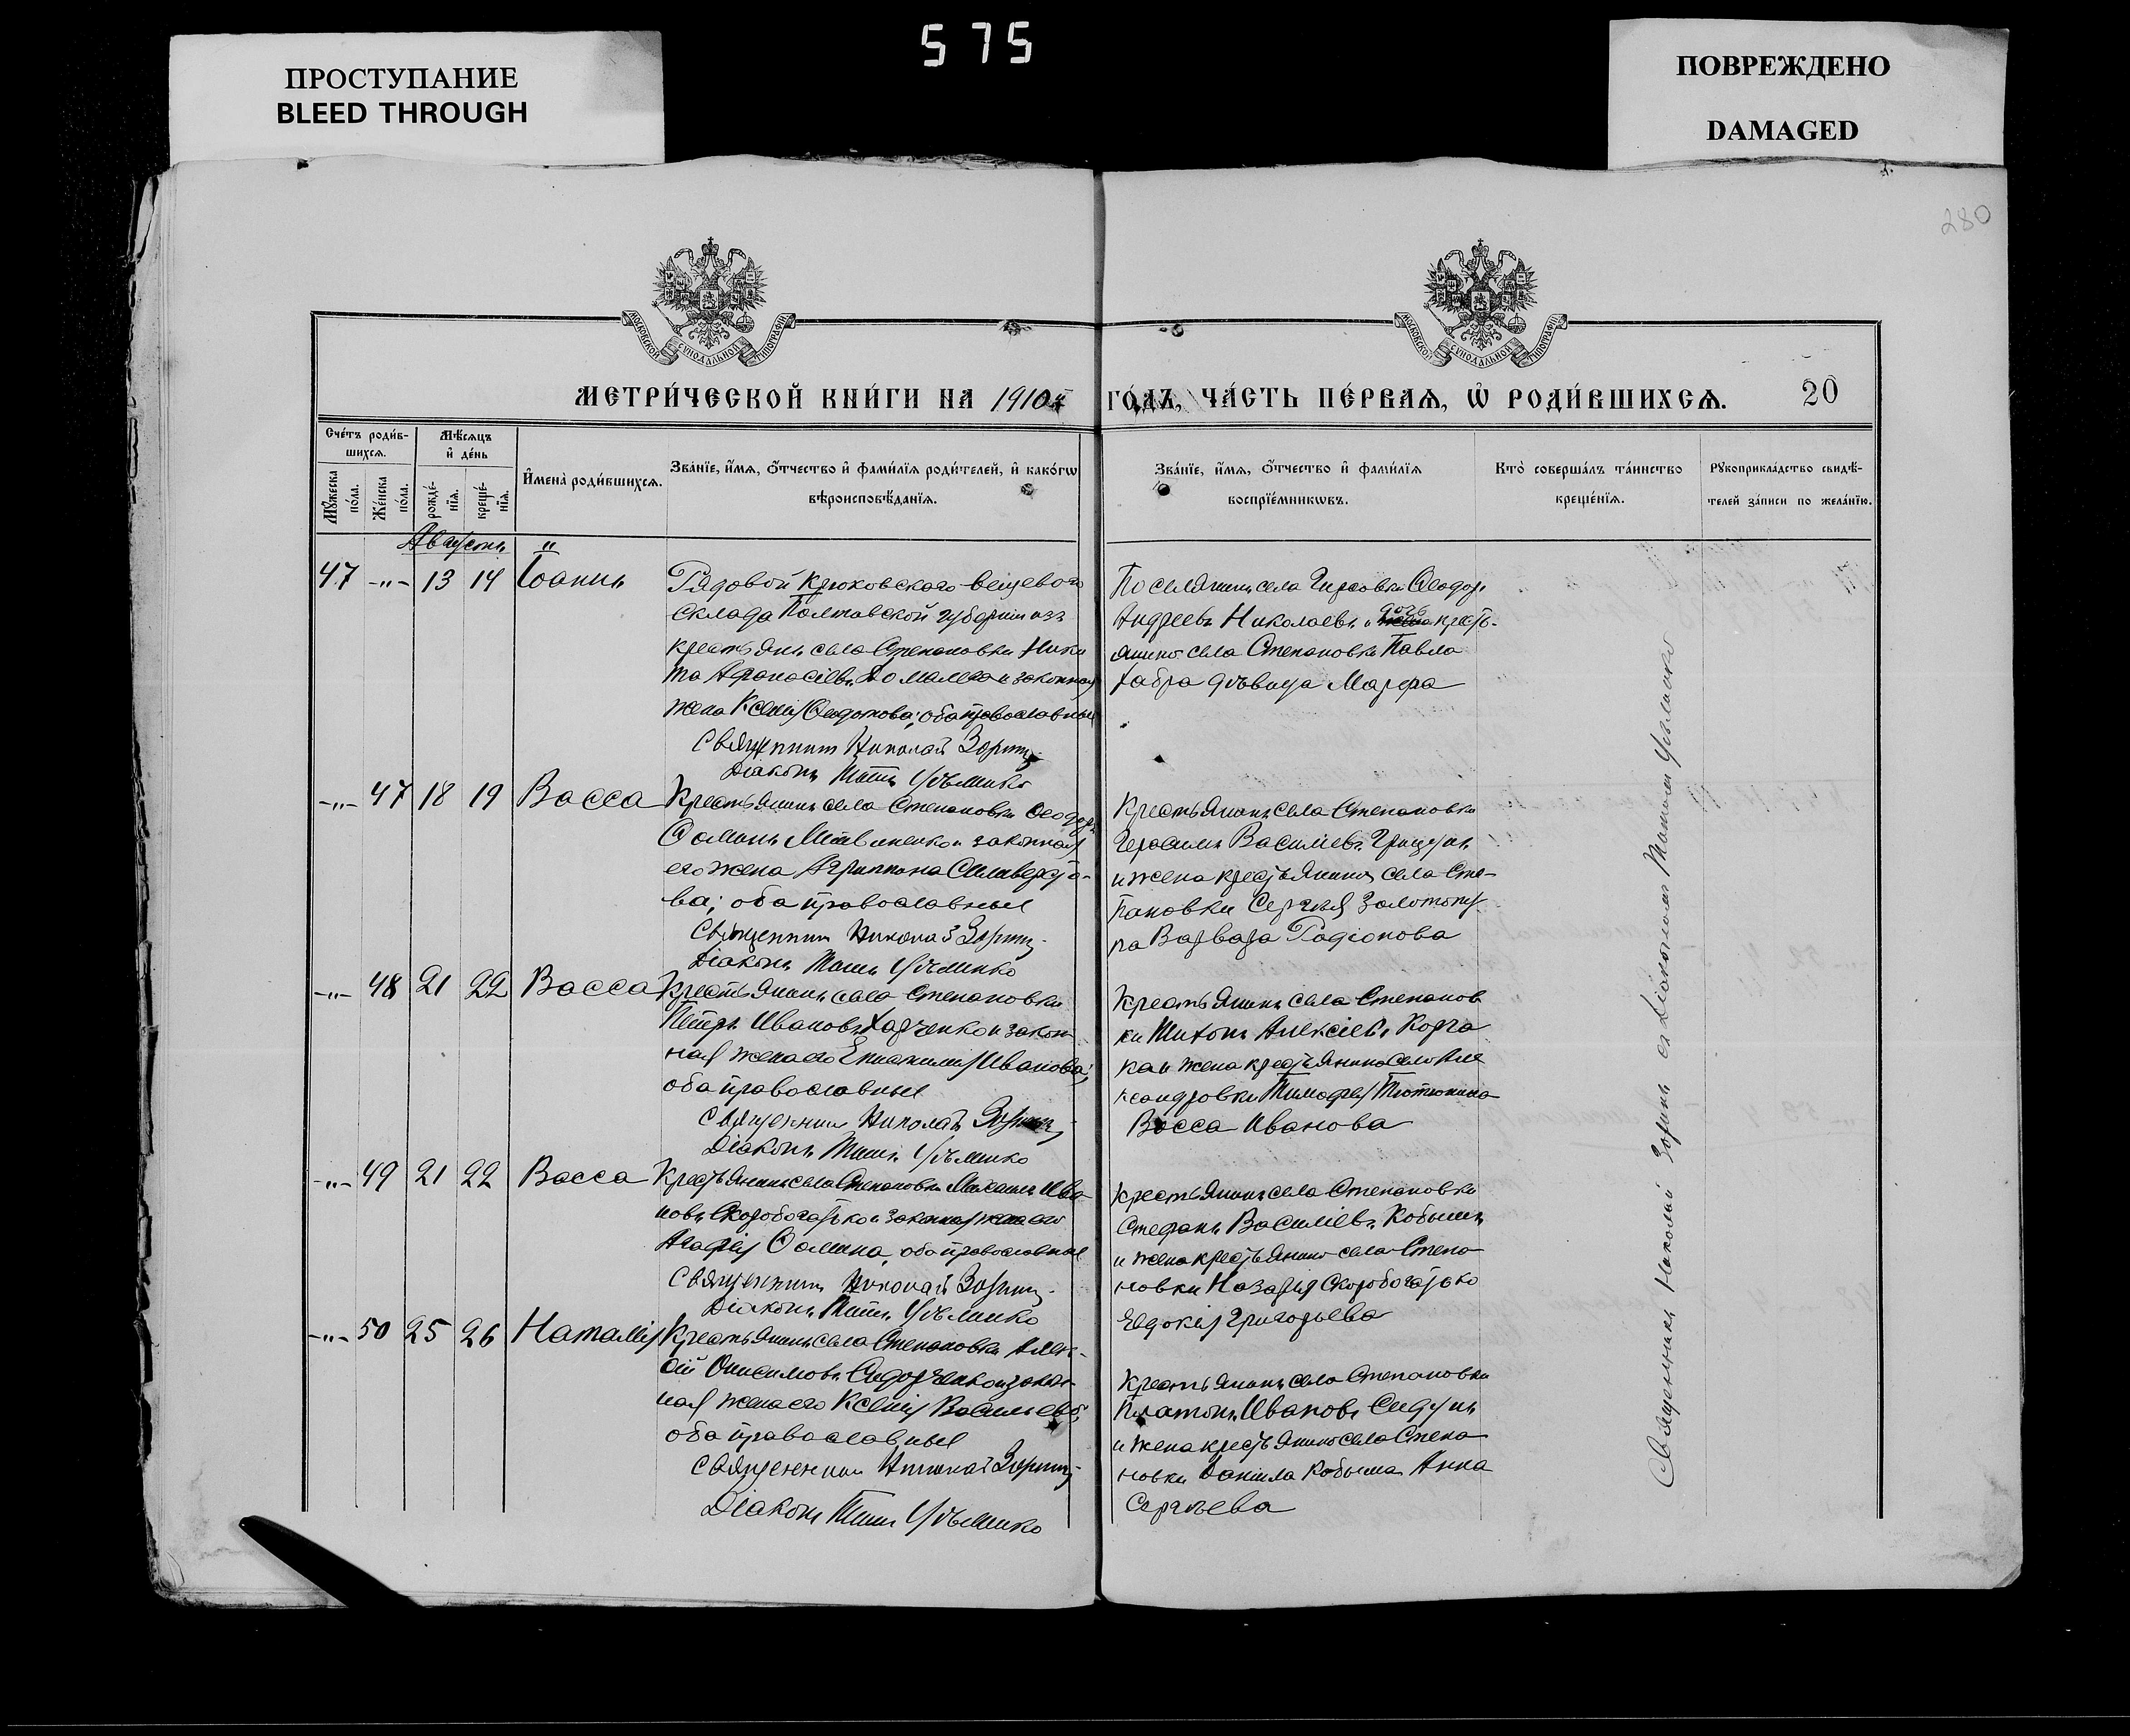 575
ПРОСТУПАНИЕ
BLEED THROUGH
ПОВРЕЖДЕНО
DAMAGED
280
МОСКОВСКОЙ СѴНОДАЛЬНОЙ ТИПОГРАФІИ
МОСКОВСКОЙ СѴНОДАЛЬНОЙ ТИПОГРАФІИ
МЕТРИ́ЧЕСКОЙ КНИ́ГИ НА 1910й ГО́ДЪ, ЧА́СТЬ ПЕ́РВАѦ, Ѡ҆ РОДИ́ВШИХСѦ. 20
Сче́тъ роди́в-
шихсѧ.
Мѣ́сѧцъ
и҆ де́нь
Мꙋ́жеска
по́ла.
Же́нска
по́ла.
рожде́-
нїѧ.
креще́-
нїѧ.
И҆мена̀ роди́вшихсѧ.
Зва́нїе, и҆́мѧ, ѻ҆́тчество и҆ фами́лїѧ роди́телей, и҆ како́гѡ
вѣроисповѣ́данїѧ.
Зва́нїе, и҆́мѧ, ѻ҆́тчество и҆ фами́лїѧ
воспрїе́мникѡвъ.
Кто̀ соверша́лъ та́инство
креще́нїѧ.
Рꙋкоприкла́дство свидѣ́-
телей за́писи по жела́нїю.
Августъ "
47 -"- 13 14 Іоаннъ
Рядовой Крюковского вещевого
склада Полтавской губерніи изъ
крестьянъ села Степановки Ники
та Афанасіевъ и законная
жена Ксенія; оба православные
Священникъ Николай Зоринъ
Діаконъ
Поселянинъ села Ѳеодоръ
Андреевъ Николаевъ и дочь крестья-
янина села Степановки Павла
Хабра дѣвица Марфа
-"- 47 18 19 Васса
Крестьянинъ села Степановки Ѳеодоръ
Ѳоминъ и законная
его жена Агриппина Сильверсто-
ва; оба православные
Священникъ Николай Зоринъ
Діаконъ
Крестьянинъ села Степановки
Герасимъ Василіевъ Грицунъ
и жена крестьянина села Сте-
пановки Сергѣя
Варвара Родіонова
-"- 48 21 22 Васса
Крестьянинъ села Степановки
Петръ Ивановъ Харченко и закон-
ная жена его Иванова;
оба православные
Священникъ Николай Зоринъ
Діаконъ
Крестьянинъ села Степанов
ки Тихонъ Алексіевъ
и жена крестьянина села Але
ксандровки Тимофея Тютюника
Васса Иванова
-"- 49 21 22 Васса
Крестьянинъ села Степановки Ива
новъ Скоробогатько и законная жена его
Агафія Ѳомина, оба православные
Священникъ Николай Зоринъ
Діаконъ
Крестьянинъ села Степановки
Стефанъ Василіевъ Кобылъ
и жена крестьянина села Степа
новки Назарія Скоробогатько
Евдокія Григорьева
-"- 50 25 26 Наталія
Крестьянинъ села Степановки Алек-
сій Онисимовъ Сидорченко и закон-
ная жена его Ксенія Васильева,
оба православные
Священникъ Николай Зоринъ
Діаконъ
Крестьянинъ села Степановки
Платонъ Ивановъ
и жена крестьянина села Степа
новки Даніила Кобыла Анна
Сергѣева
Священникъ Николай Зоринъ съ Діакономъ